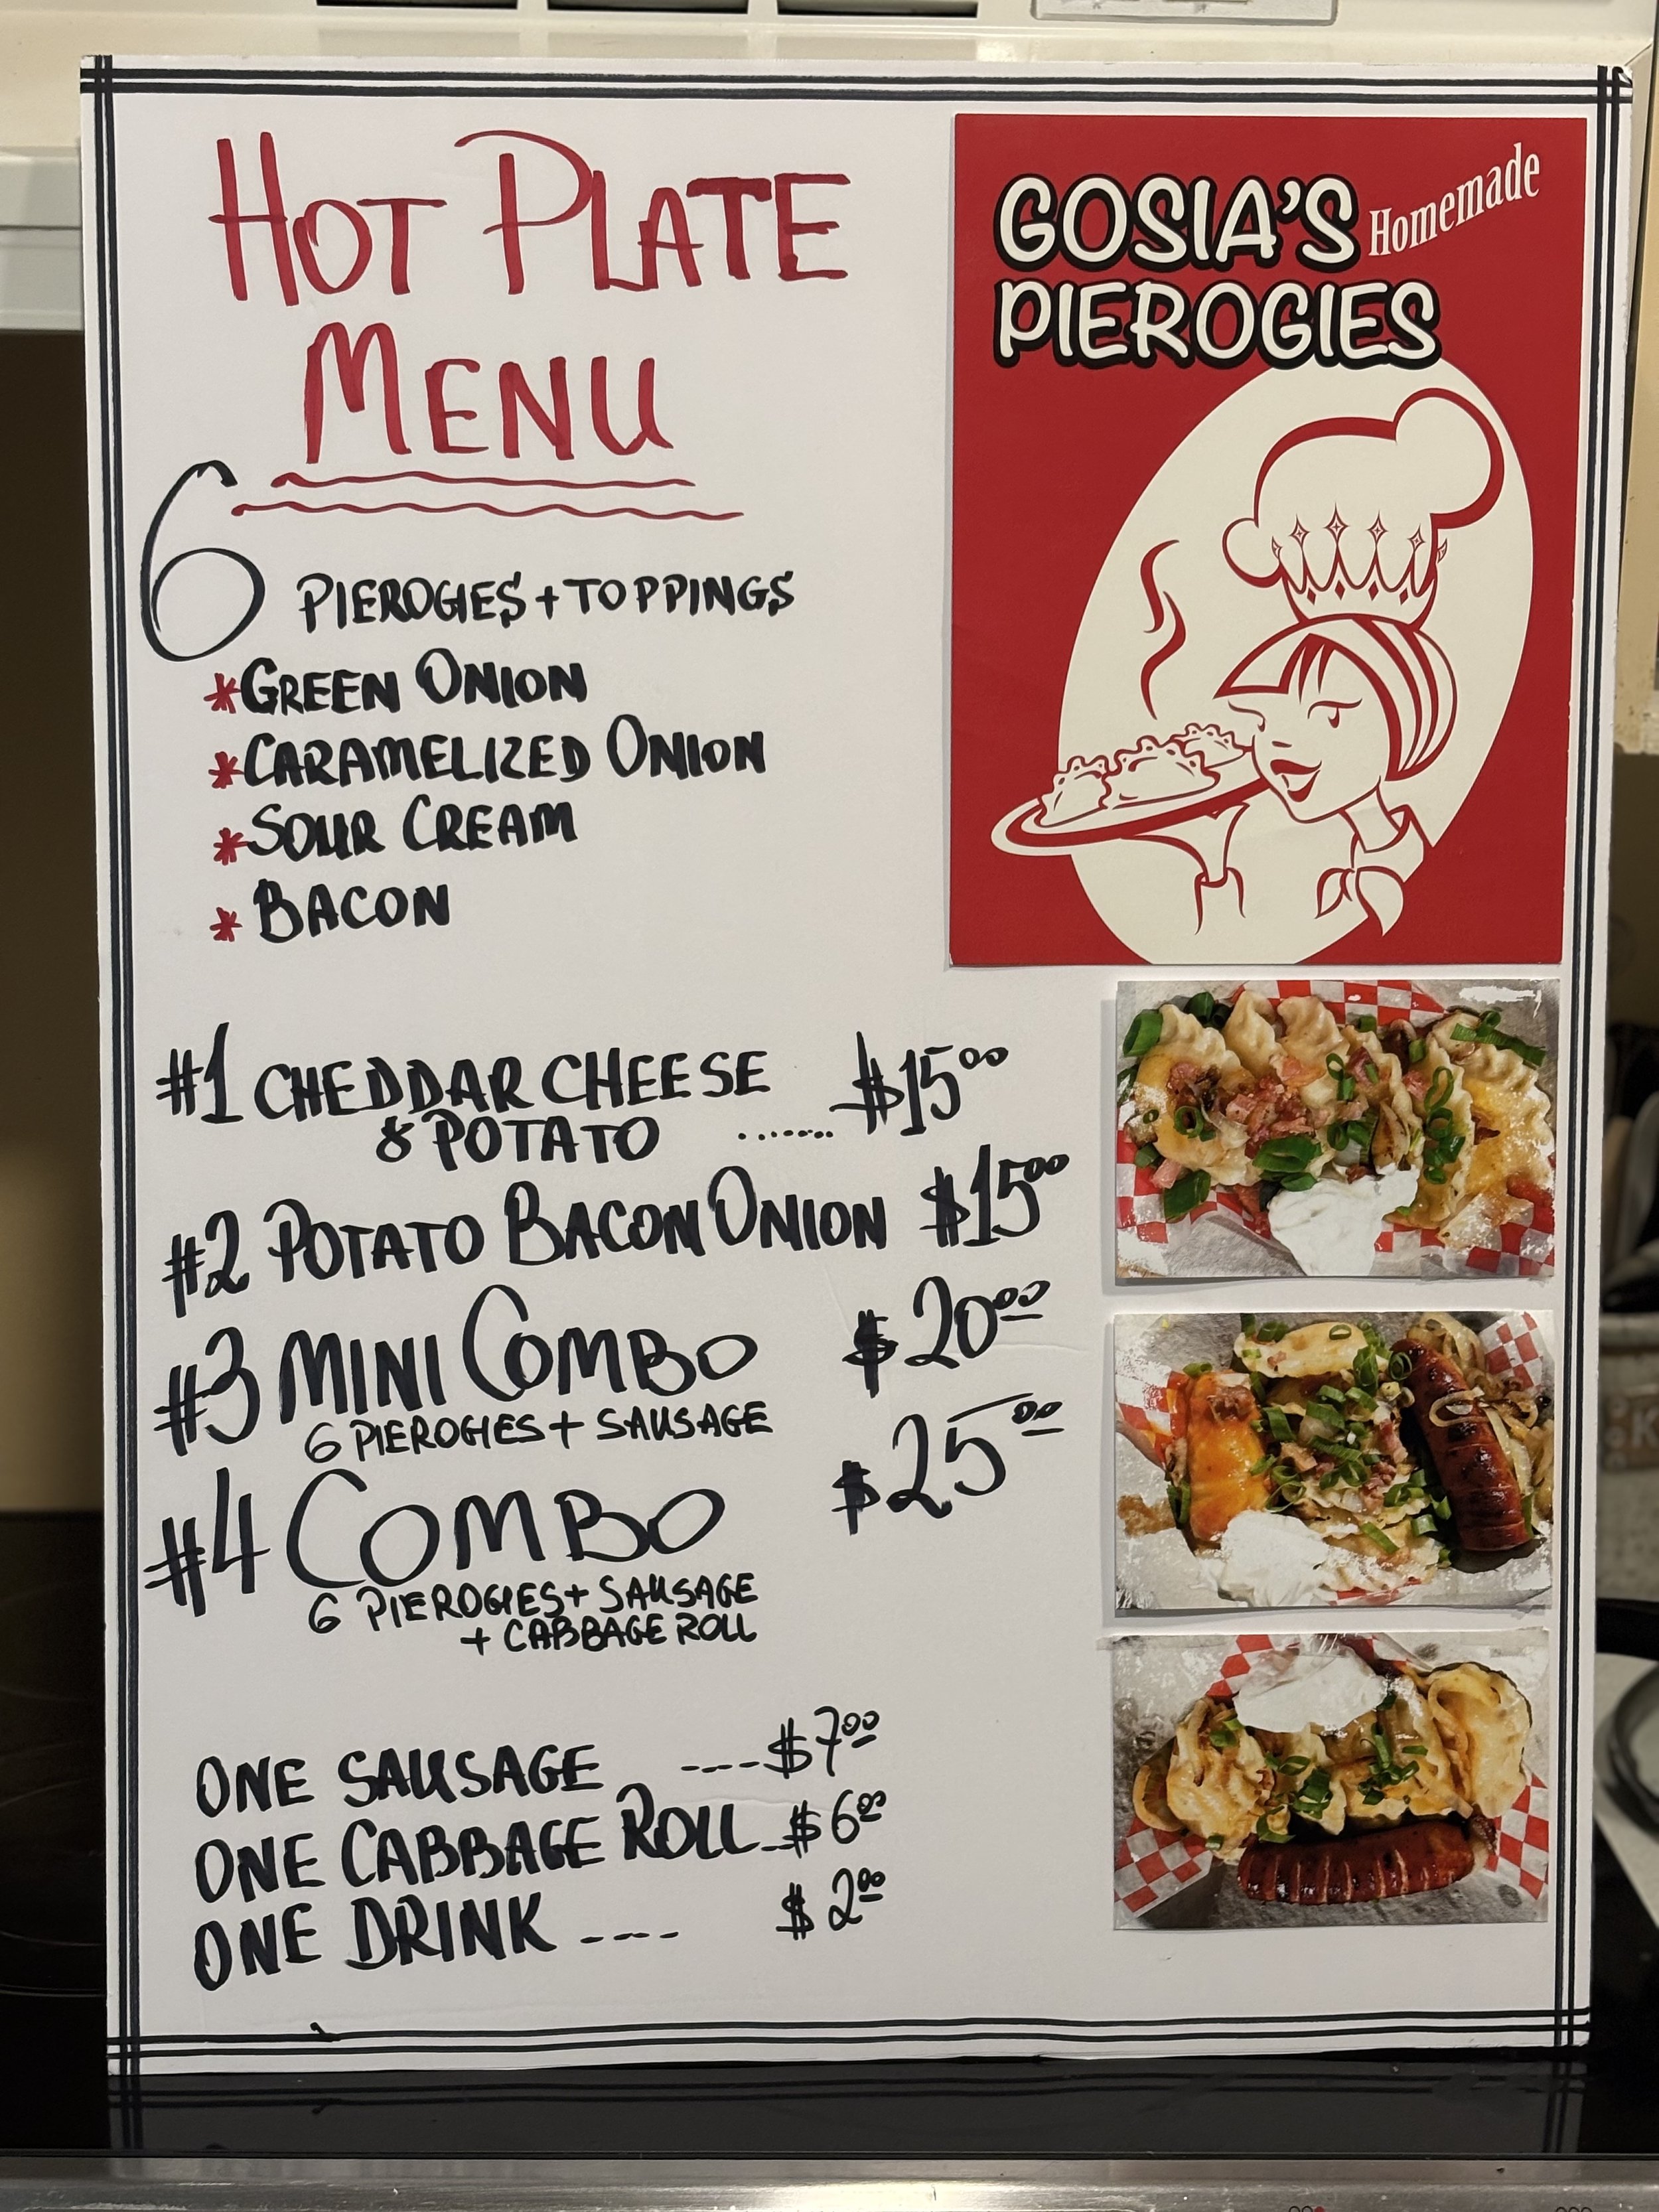 HOT PLATE
MENU
6 PIEROGIES + TOPPINGS
*GREEN ONION
*CARAMELIZED ONION
*SOUR CREAM
*BACON
#1 CHEDDAR CHEESE
& POTATO ....... $15.00
#2 POTATO BACON ONION $15.00
#3 MINI COMBO $20.00
6 PIEROGIES + SAUSAGE
#4 COMBO $25.00
6 PIEROGIES + SAUSAGE
+ CABBAGE ROLL
ONE SAUSAGE ---- $7.00
ONE CABBAGE ROLL - $6.00
ONE DRINK ---- $2.00
GOSIA'S Homemade
PIEROGIES